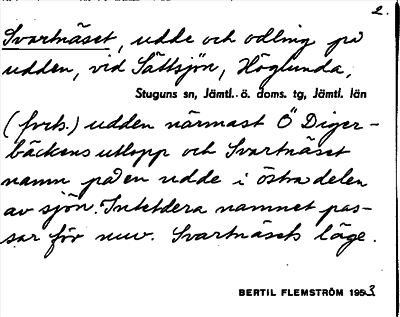 2.
Svartnäset, udde och odling på
udden, vid Sättsjön, Höglunda,
Stuguns sn, Jämtl. ö. doms. tg, Jämtl. län
(forts.) udden närmast Ö Diger-
bäckens utlopp och Svartnäset
namn på en udde i östra delen
av sjön. Intetdera namnet pas-
sar för nuv. Svartnäsets läge.
BERTIL FLEMSTRÖM 1953